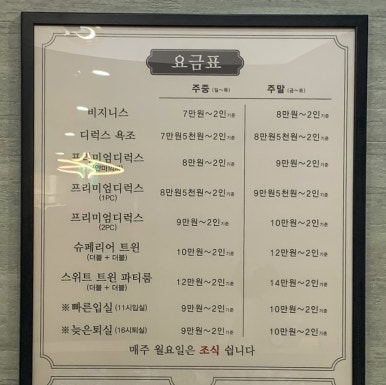 요금표
주중 (일~목) 주말 (금~토)
비지니스 7만원~2인기준 8만원~2인기준
디럭스 욕조 7만원5천원~2인기준 8만원5천원~2인기준
프리미엄디럭스 8만원~2인기준 9만원~2인기준
프리미엄디럭스 8만원5천원~2인기준 9만원5천원~2인기준
(1PC)
프리미엄디럭스 9만원~2인기준 10만원~2인기준
(2PC)
슈페리어 트윈 10만원~2인기준 12만원~2인기준
(더블 + 더블)
스위트 트윈 파티룸 12만원~2인기준 14만원~2인기준
(더블 + 더블)
※빠른입실 (11시입실) 9만원~2인기준 10만원~2인기준
※늦은퇴실 (16시퇴실) 9만원~2인기준 10만원~2인기준
매주 월요일은 조식 쉽니다